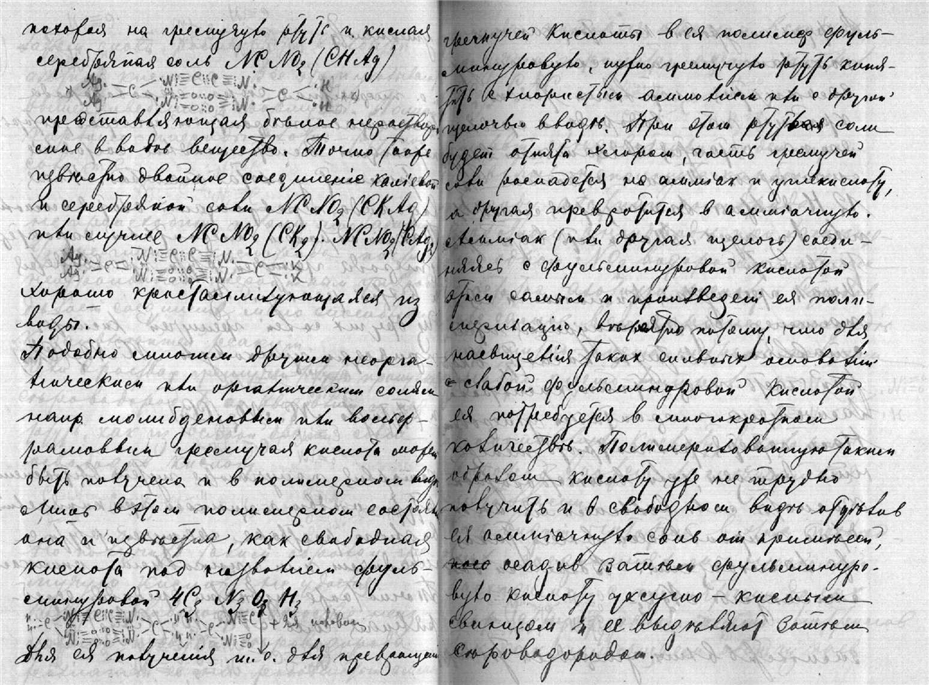 похожая на гремучую ртуть и кислая
серебряная соль NC NO₂ (CHAg)
представляющая белое нераствори
мое в воде вещество. Точно также
известно двойное соединение калиевой
и серебряной соли NCNO₂ (CKAg)
или смутнее NCNO₂ (CK₂). NCNO₂ (CAg₂)
хорошо кристаллизующаяся из
воды.
Подобно многим другим неорга-
ническим или органическим солям
напр молибденовым или вольф-
рамовым гремучая кислота может
быть получена и в полимерном виде
Лишь в этом полимерном состоянии
она и известна, как свободная
кислота под названием фуль-
минуровой 4C₂ N₂ O₂ H₂
Для ея получения т.е. для превращения
гремучей кислоты в ея полимер фуль-
минуровую, нужно гремучую ртуть кипя-
тить с хлористым аммонием или с другой
щелочью в воде. При этом ртутная соли
будет отнята хлором, часть гремучей
соли распадется на аммиак и углекислоту,
а другая превратится в аммиачную.
Аммиак (или другая щелочь) соеди-
няясь с фульминуровой кислотой
этим самым и произведет ея поли-
меризацию, вероятно потому, что для
насыщения таких сильных оснований
слабой фульминуровой кислотой
ея потребуется в многократном
количестве. Полимеризованную таким
образом кислоту уже не трудно
получить и в свободном виде отделив
ея аммиачную соль от примесей,
осадив затем фульминуро-
вую кислоту уксусно-кислым
свинцом и ее выделяют затем
сероводородом.